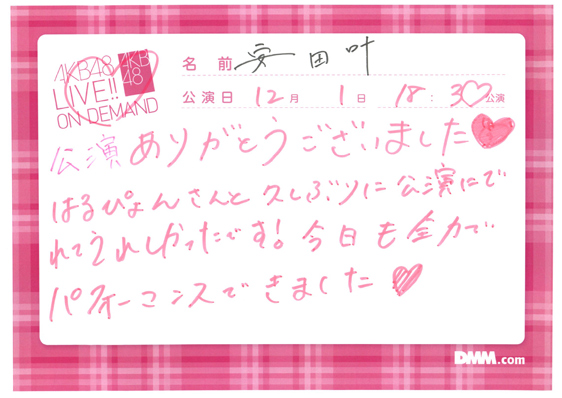 AKB48
LIVE!!
ON DEMAND
AKB
48
名 前 安田叶
公演日 12月 1日 18:30公演
公演ありがとうございました♥
はるぴょんさんと久しぶりに公演にで
れてうれしかったです!今日も全力で
パフォーマンスできました♥
DMM.com